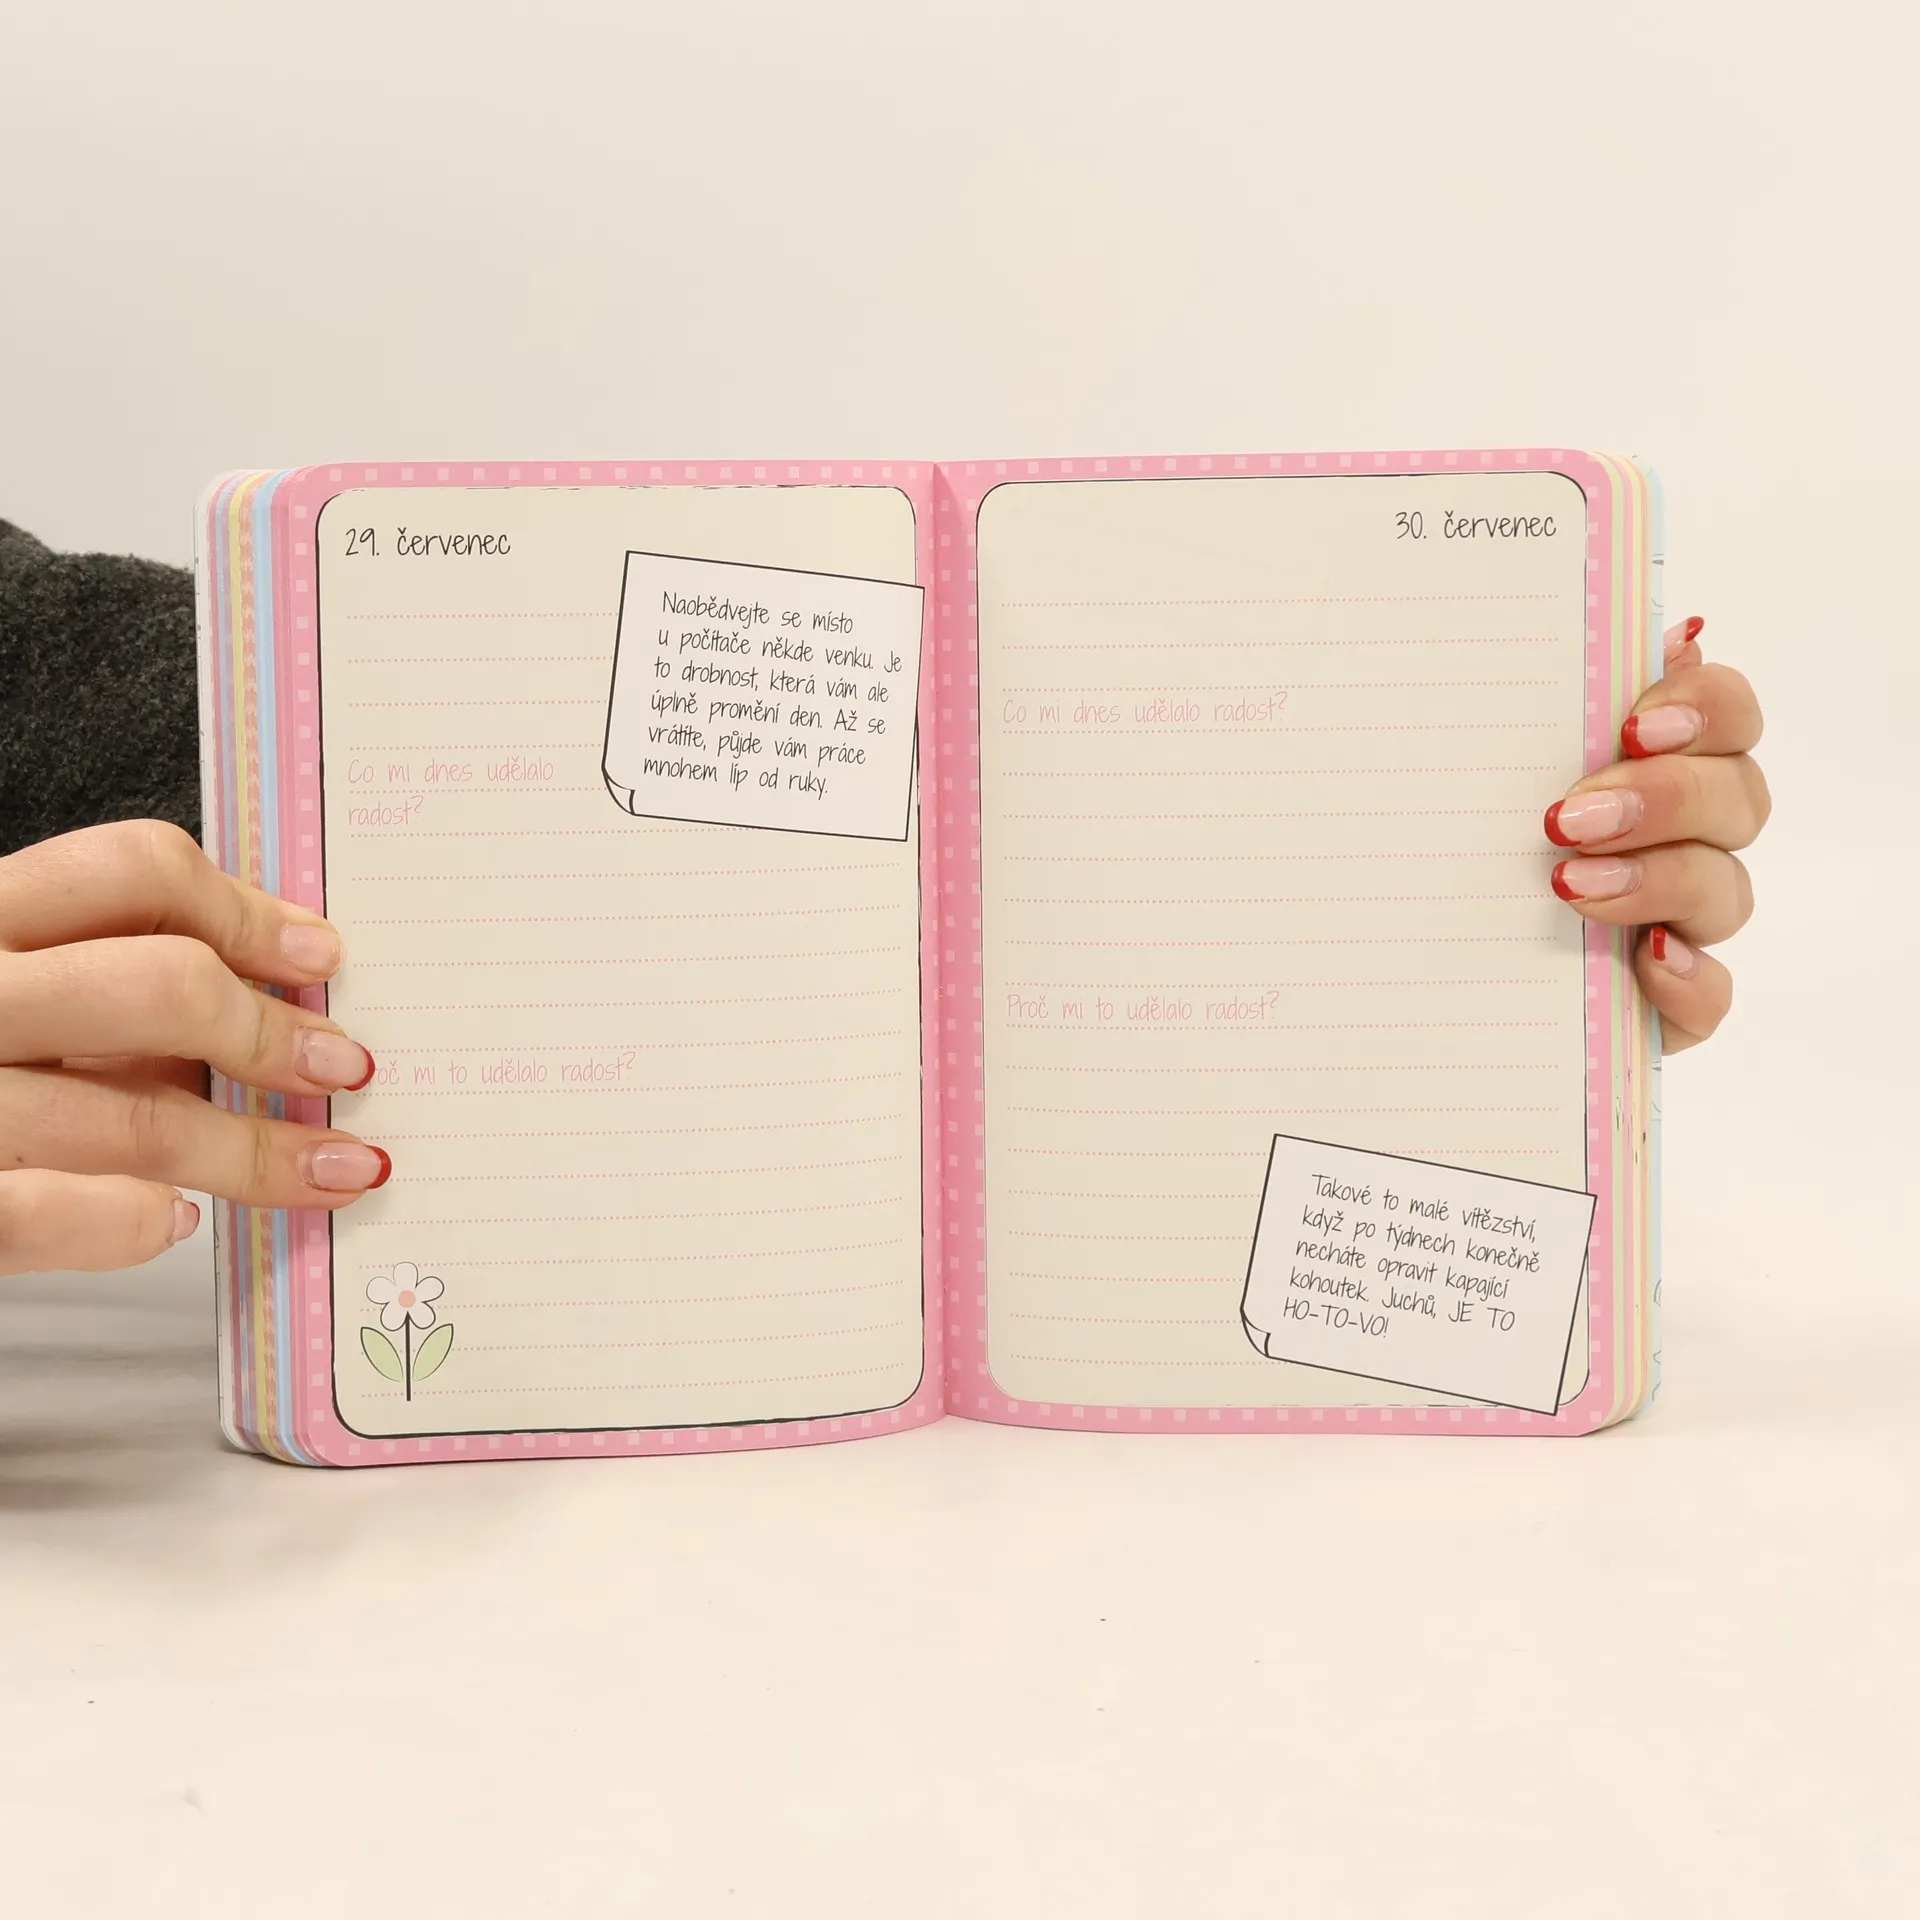 29. červenec
Naobědvejte se místo
u počítače někde venku. Je
to drobnost, která vám ale
úplně promění den. Až se
vrátíte, půjde vám práce
mnohem líp od ruky.
Co mi dnes udělalo
radost?
mi to udělalo radost?
30. červenec
Co mi dnes udělalo radost?
Proč mi to udělalo radost?
Takové to malé vítězství,
když po týdnech konečně
necháte opravit kapající
kohoutek. Juchů, JE TO
HO-TO-VO!